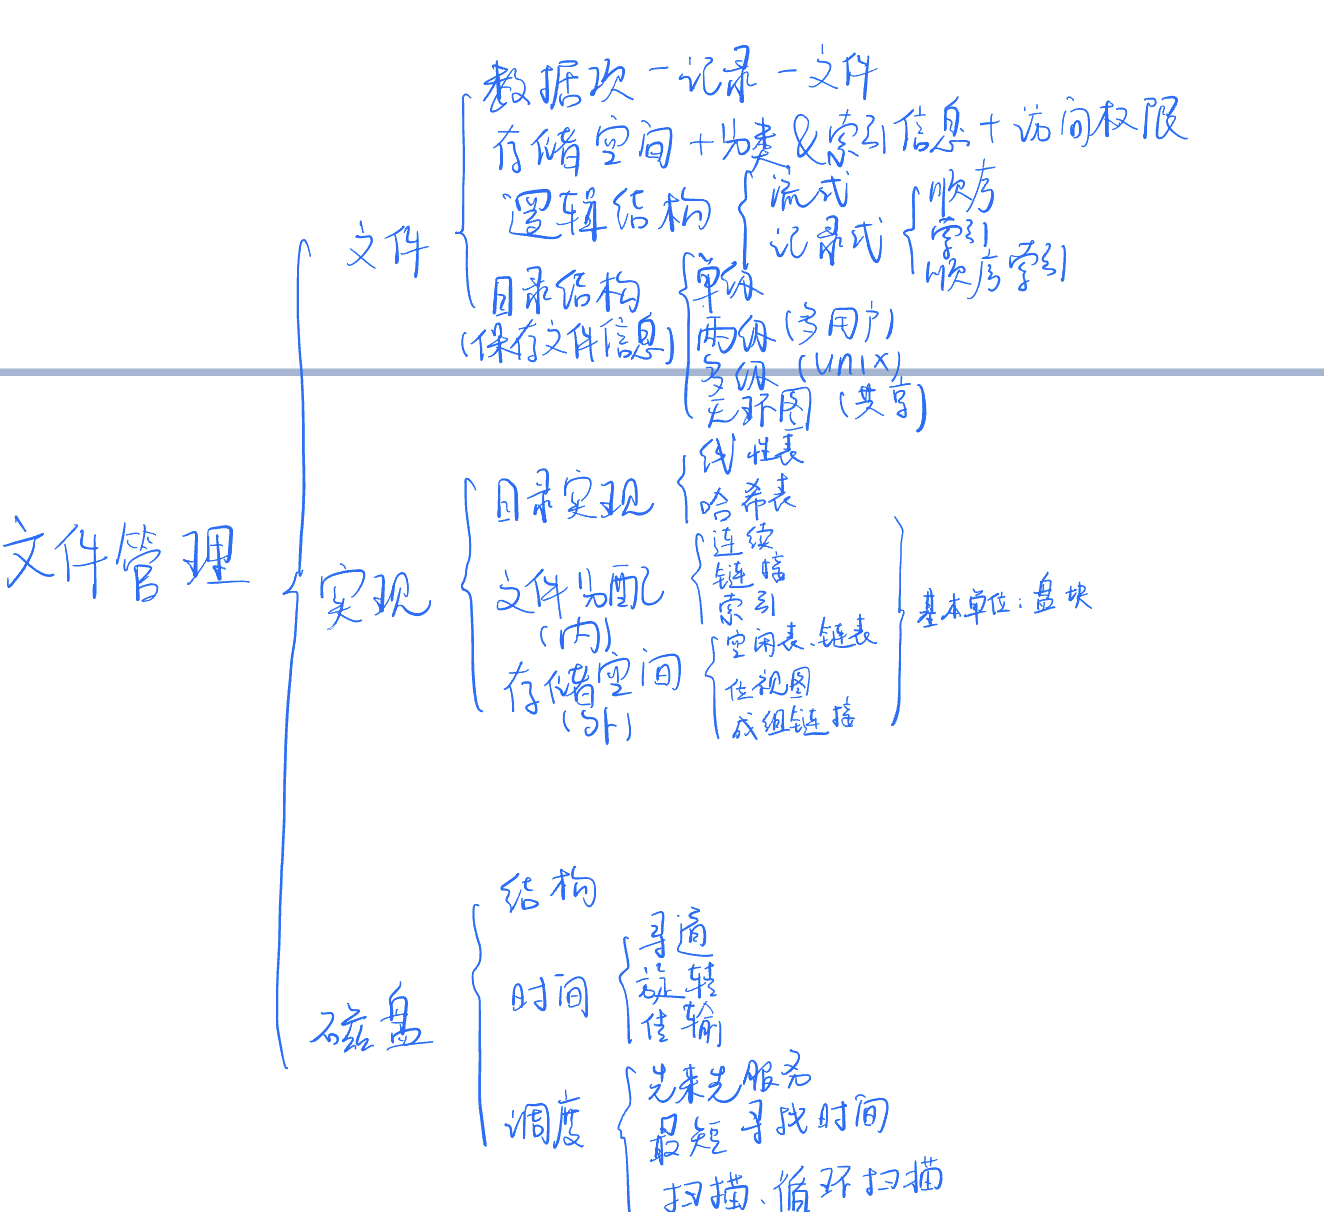 数据项－记录－文件
存储空间＋分类&索引信息＋访问权限
文件
逻辑结构
流式
记录式
顺序
索引
顺序索引
目录结构
(保存文件信息)
单级
两级(多用户)
多级(UNIX)
无环图(共享)
文件管理
实现
目录实现
线性表
哈希表
文件分配
(内)
连续
链接
索引
存储空间
(外)
空闲表、链表
位视图
成组链接
基本单位:盘块
磁盘
结构
时间
寻道
旋转
传输
调度
先来先服务
最短寻找时间
扫描、循环扫描